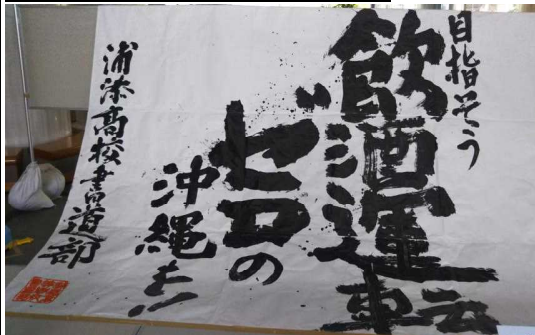 目指そう
飲酒運転
ゼロの
沖縄を!!
浦添高校書道部